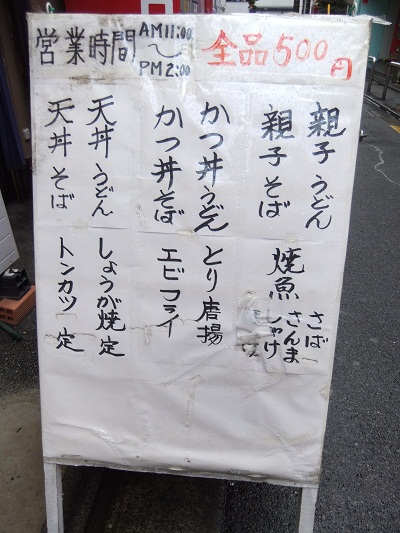 営業時間 AM11:00
〜
PM2:00
全品500円
親子うどん
親子そば
かつ丼うどん
かつ丼そば
天丼うどん
天丼そば
焼魚
さば
さんま
しゃけ
とり唐揚
エビフライ
しょうが焼定
トンカツ定